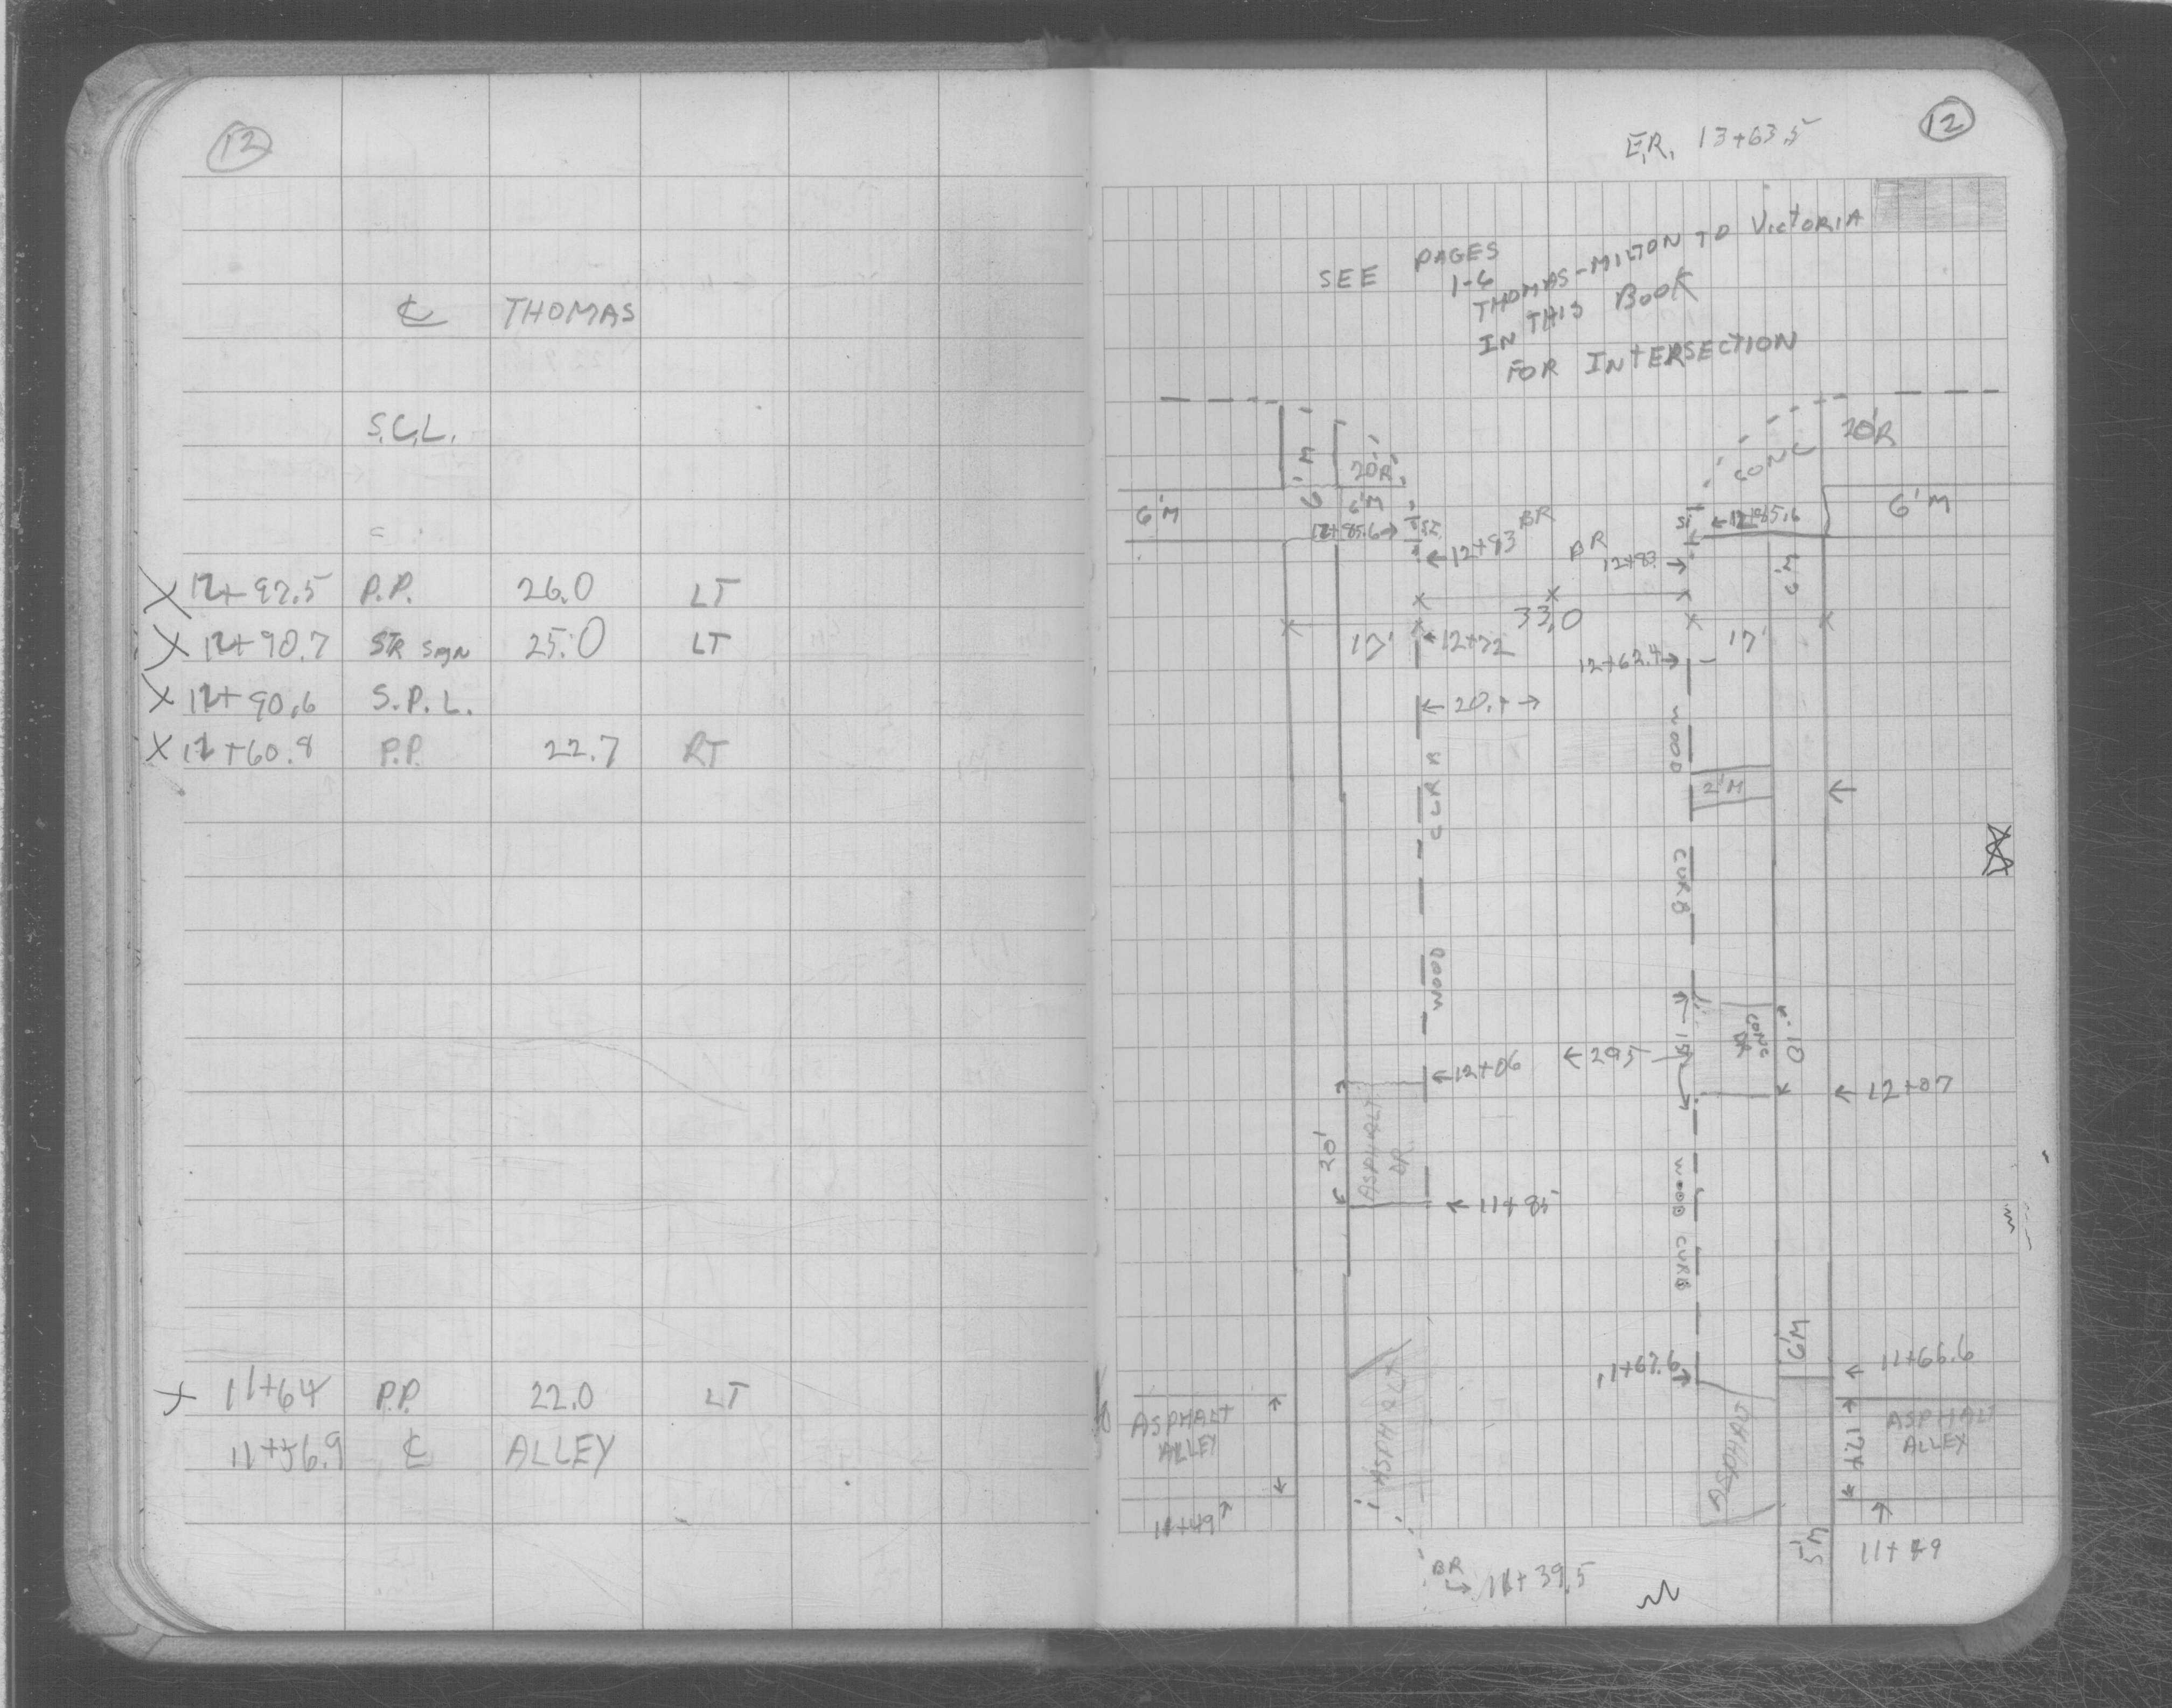 12
℄ THOMAS
S.C.L.
12+92.5 P.P. 26.0 LT
12+90.7 STR SIGN 25.0 LT
12+90.6 S.P.L.
12+60.8 P.P. 22.7 RT
11+64 P.P. 22.0 LT
11+56.9 ℄ ALLEY
12
E.R. 13+63.5
SEE PAGES
1-6
THOMAS-MILTON TO VICTORIA
IN THIS BOOK
FOR INTERSECTION
6'M
20'R
CONC
20'R
6'M
6'M
12+85.6→
←12+85.6
6'M
←12+93 BR
BR
6'M
33.0
17'
←12+72
12+62.4→
17'
WOOD
CURB
2'M
←
CURB
WOOD
CONC
DR
10.
←29.5
←12+06
←12+07
20'
ASPHALT
DR.
←11+85
WOOD CURB
6'M
11+67.6
← 11+66.6
ASPHALT
ALLEY
ASPHALT
ASPHALT
17.4
ASPHALT
ALLEY
11+49
5'M
11+49
BR
11+39.5